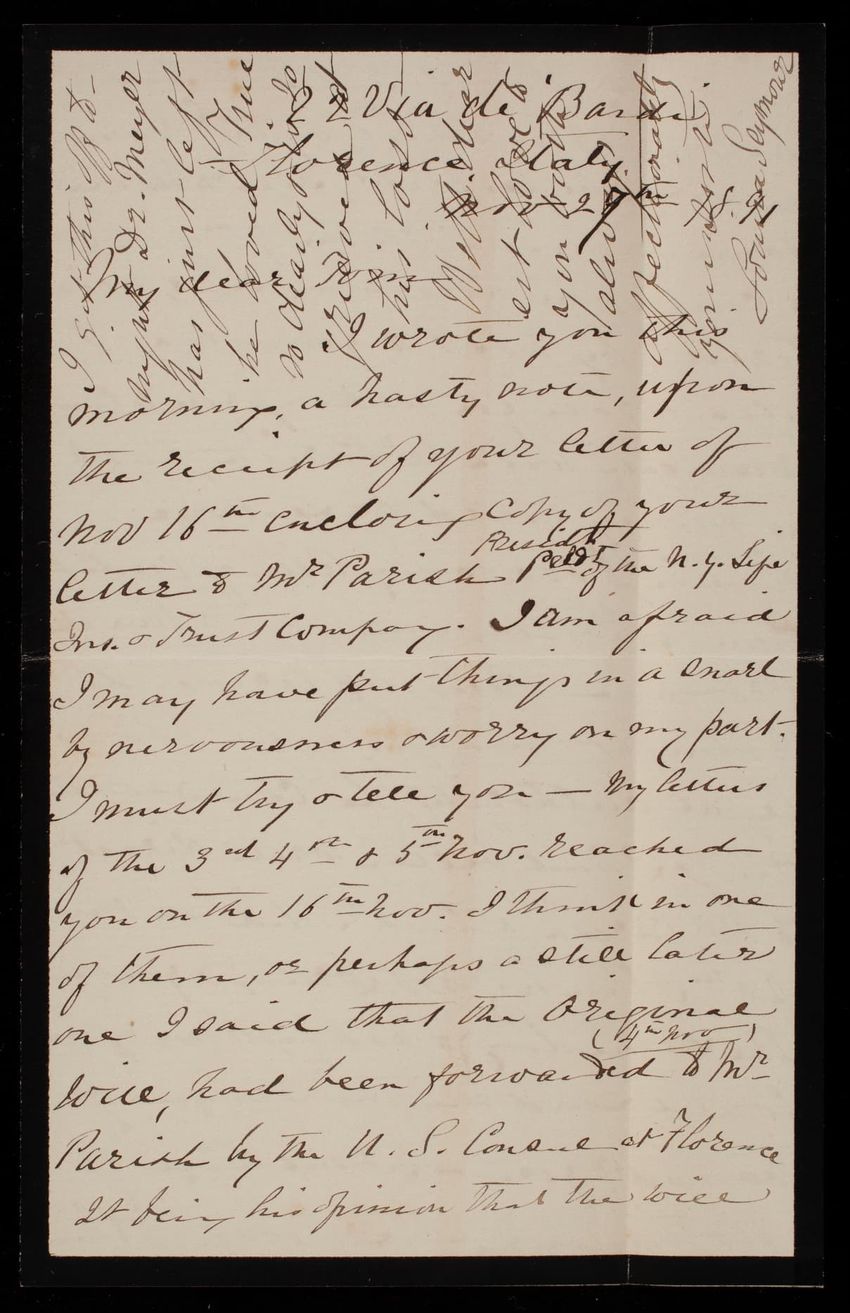 22 Via de' Bardi
Florence Italy
Nov 27th 1891
My dear Tom
I wrote you this
morning, a hasty note, upon
the receipt of your letter of
Nov 16th enclosing copy of your
letter to Mr Parish Presidt of the N. Y. Life
Ins. & Trust Company. I am afraid
I may have put things in a snarl
by nervousness & worry on my part.
I must try & tell you — My letters
of the 3rd 4th & 5th Nov. reached
you on the 16th Nov. I think in one
of them, or perhaps a still later
one I said that the Original
(4th Nov)
Will, had been forwarded to Mr
Parish by the U. S. Consul at Florence
It being his opinion that the will
I get this off to-
night Dr. Meyer
has just left
True
he loved
so dearly
grieved at
his loss
With dear
est love to
you both
also
Affectionately
your sister
Louisa Seymour